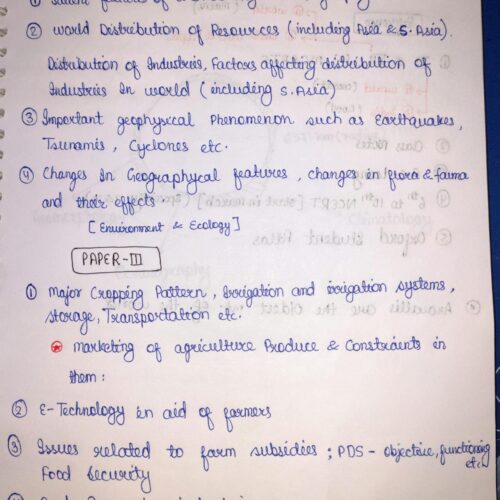 ② world Distribution of Resources (including Asia & S. Asia).
Distribution of Industries, Factors affecting distribution of
Industries In world (including S. Asia)
③ Important geophysical Phenomenon such as Earthquakes,
Tsunamis, Cyclones etc.
④ Changes in Geographycal features, changes in flora & fauna
and their effects
[Environment & Ecology]
PAPER-III
① Major Cropping Pattern, Irrigation and irrigation systems,
Storage, Transportation etc.
marketing of agriculture Produce & Constraints in
them:
② E-Technology in aid of farmers
③ Issues related to farm subsidies; PDS - objective, functioning
etc
Food Security